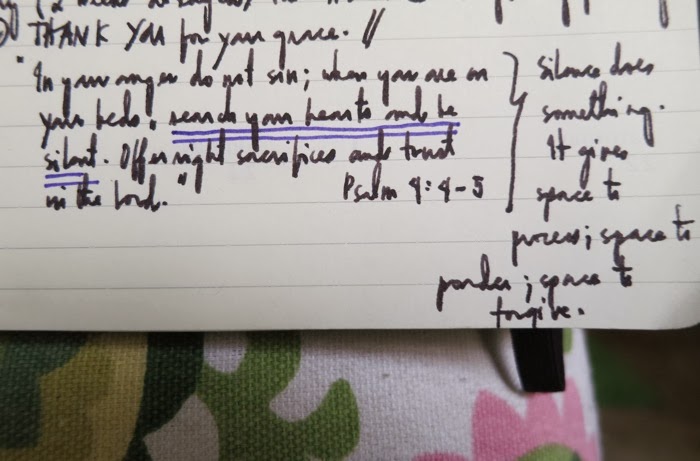 THANK YOU for your grace. //
"In your anger do not sin; when you are on
your beds, search your hearts and be
silent. Offer right sacrifices and trust
in the Lord."
Psalm 4:4-5
Silence does
something.
It gives
space to
process; space to
ponder; space to
forgive.